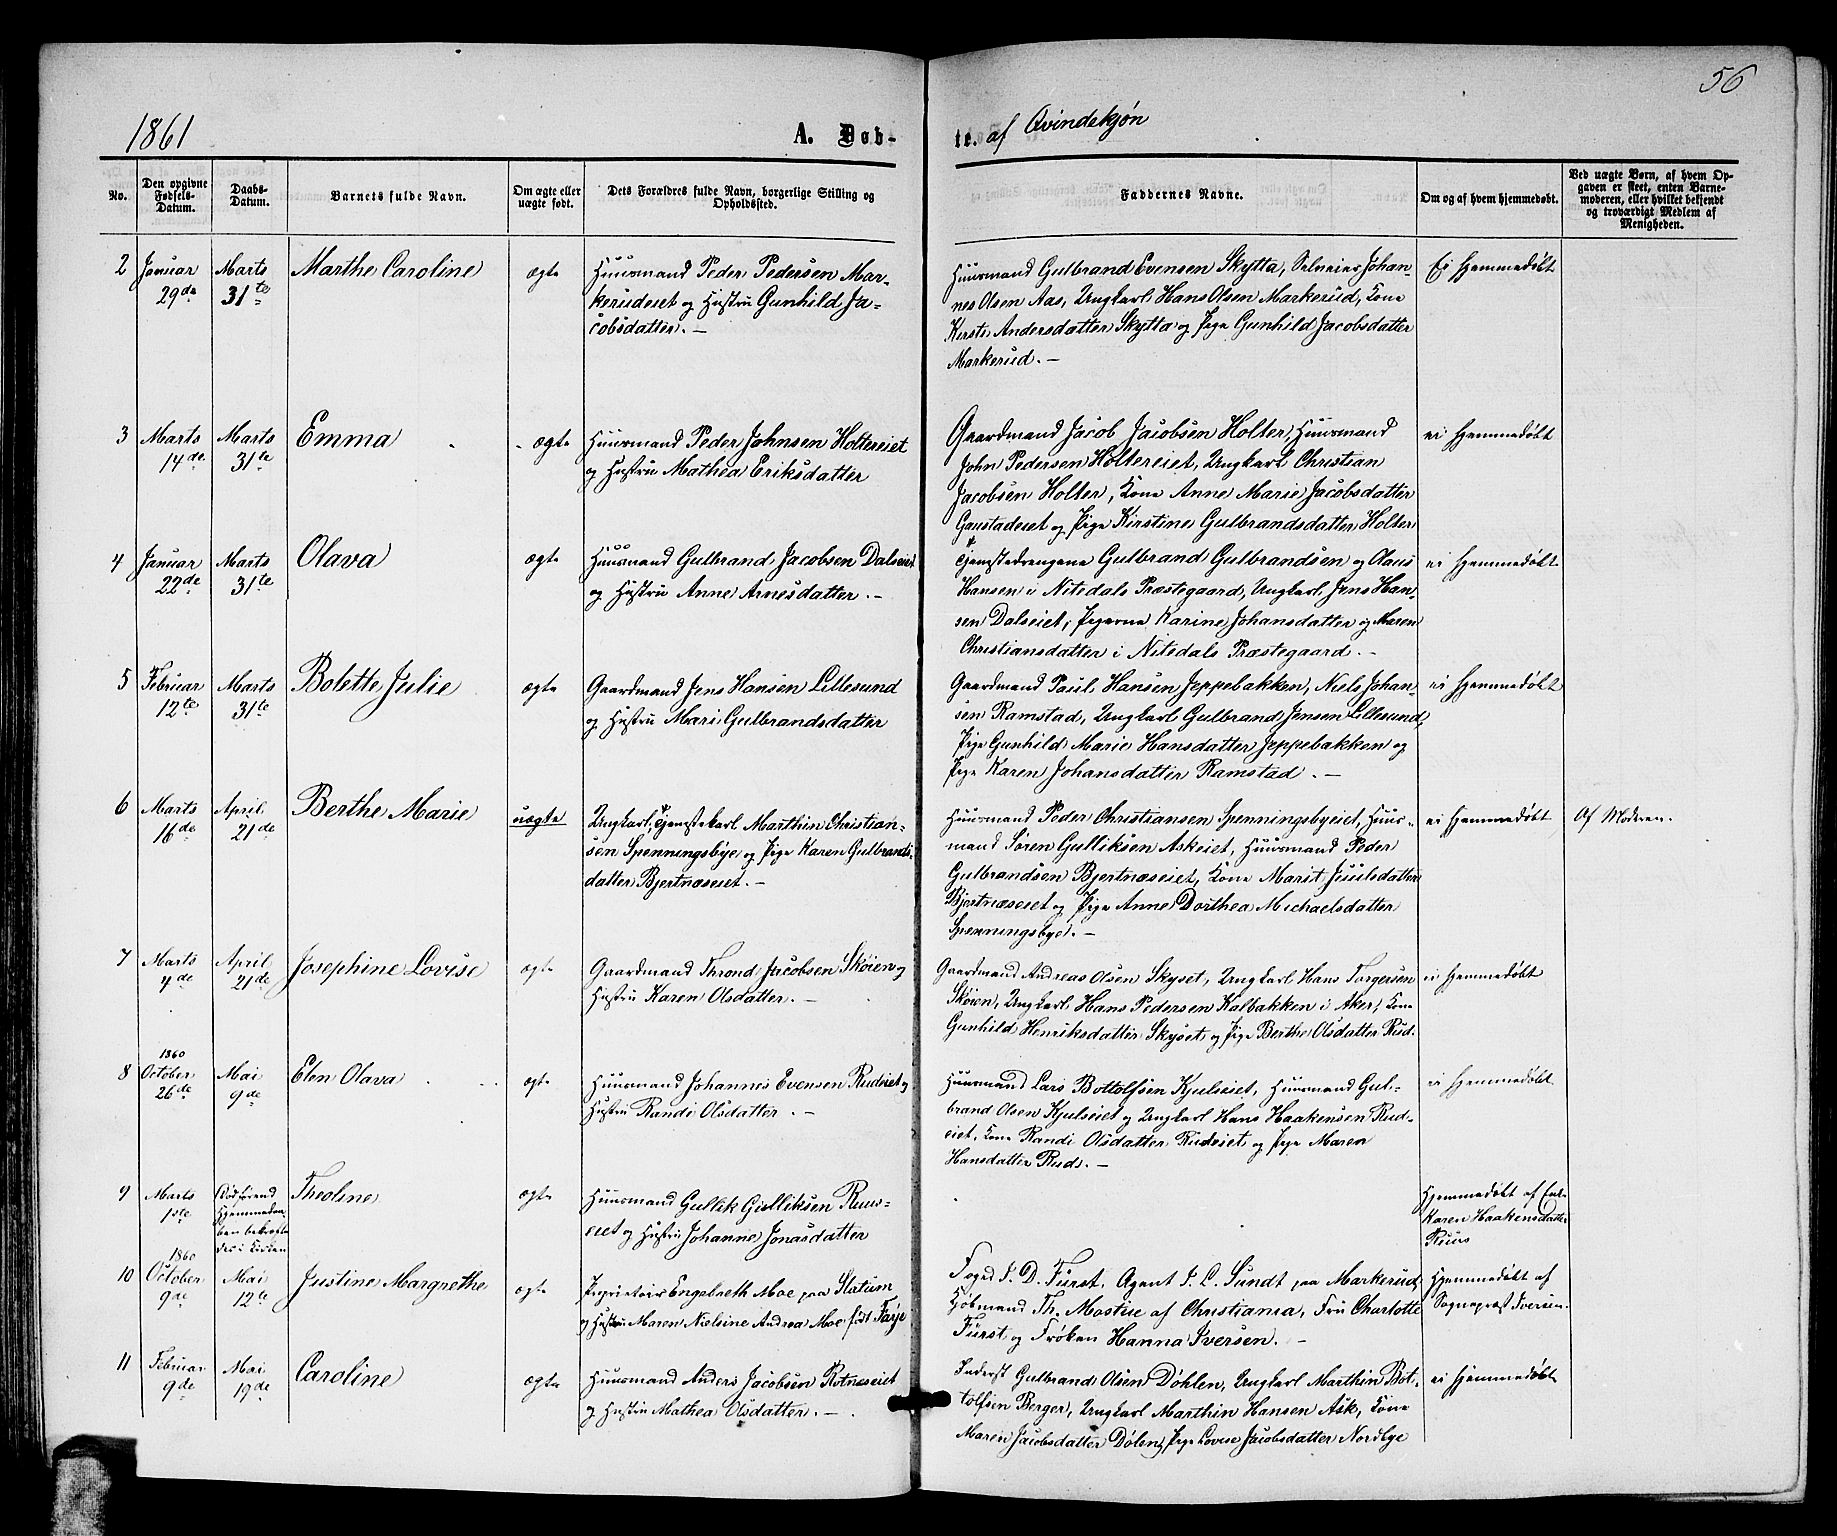 56
1861
A. Døb-
te. af Qvindekjøn
No.
Den opgivne Fødsels-Datum.
Daabs-Datum.
Barnets fulde Navn.
Om ægte eller uægte født.
Dets Forældres fulde Navn, borgerlige Stilling og Opholdssted.
Faddernes Navne.
Om og af hvem hjemmedøbt.
Ved uægte Børn, af hvem Opgaven er skeet, enten Barnemoderen, eller hvilket bekjendt og troværdigt Medlem af Menigheden.
2 Januar 29de Marts 31te Marthe Caroline ægte
Huusmand Peder Pedersen Mar-
kerudeiet og Hustru Gunhild Ja-
cobsdatter. —
Huusmand Gulbrand Evensen Skytta, Selveier Johan-
nes Olsen Aas, Ungkarl Hans Olsen Markerud, Kone
Kersti Andersdatter Skytta og Pige Gunhild Jacobsdatter
Markerud. —
Ei hjemmedøbt
3 Marts 14de Marts 31te Emma ægte
Huusmand Peder Johnsen Holtereiet
og Hustru Mathea Eriksdatter
Gaardmand Jacob Jacobsen Holter, Huusmand
John Pedersen Holtereiet, Ungkarl Christian
Jacobsen Holter, Kone Anne Marie Jacobsdatter
Gaustadeiet og Pige Kirstine Gulbrandsdatter Holter
ei hjemmedøbt
4 Januar 22de Marts 31te Olava ægte
Huusmand Gulbrand Jacobsen Dalseiet
og Hustru Anne Arnesdatter. —
Tjenestedrengene Gulbrand Gulbrandsen og Olaus
Hansen i Nitedals Præstegaard, Ungkarl Jens Han-
sen Dalseiet, Pigerne Karine Johansdatter og Maren
Christiansdatter i Nitedals Præstegaard. —
ei hjemmedøbt
5 Februar 12te Marts 31te Bolette Julie ægte
Gaardmand Jens Hansen Lillesund
og Hustru Mari Gulbrandsdatter
Gaardmand Paul Hansen Jeppebakken, Niels Johan-
sen Ramstad, Ungkarl Gulbrand Jensen Lillesund,
Pige Gunhild Marie Hansdatter Jeppebakken og
Pige Karen Johansdatter Ramstad. —
ei hjemmedøbt
6 Marts 16de April 21de Berthe Marie uægte
Ungkarl, Tjenestekarl Marthin Christian-
sen Spenningsbye og Pige Karen Gulbrands-
datter Bjertnæseiet. —
Huusmand Peder Christiansen Spenningsbyeiet, Huus-
mand Søren Gulliksen Askeiet, Huusmand Peder
Gulbrandsen Bjertnæseiet, Kone Marit Juulsdatter
Bjertnæseiet og Pige Anne Dorthea Michaelsdatter
Spenningsbye. —
ei hjemmedøbt
Af Moderen.
7 Marts 4de April 21de Josephine Lovise ægte
Gaardmand Thrond Jacobsen Skøien og
Hustru Karen Olsdatter. —
Gaardmand Andreas Olsen Skyset, Ungkarl Hans Torgersen
Skøien, Ungkarl Hans Pedersen Kalbakken i Aker, Kone
Gunhild Henriksdatter Skyset og Pige Berthe Olsdatter Rud.
ei hjemmedøbt
8 1860 October 26de Mai 9de Elen Olava ægte
Huusmand Johannes Evensen Rudeiet og
Hustru Randi Olsdatter. —
Huusmand Lars Bottolfsen Kjulseiet, Huusmand Gul-
brand Olsen Kjulseiet og Ungkarl Hans Haakensen Rud-
eiet, Kone Randi Olsdatter Rudeiet og Pige Maren
Hansdatter Rud. —
ei hjemmedøbt
9 Marts 1ste Theoline ægte
Huusmand Gullik Gulliksen Ruus-
eiet og Hustru Johanne Jonasdatter
Hjemmedøbt af Enke
Karen Haakensdatter
Ruus
10 1860 October 9de Mai 12te Justine Margrethe ægte
Proprietair Engebreth Moe paa Slatum
og Hustru Maren Nielsine Andrea Moe født Farje
Foged J. D. Fürst, Agent J. L. Sundt paa Markerud,
Kjøbmand Th. Mostue af Christiania, Fru Charlotte
Fürst og Frøken Hanna Iversen. —
Hjemmedøbt af
Sognepræst Iversen.
11 Februar 9de Mai 19de Caroline ægte
Huusmand Anders Jacobsen Rotneseiet
og Hustru Mathea Olsdatter. —
Inderst Gulbrand Olsen Døhlen, Ungkarl Marthin Bot-
tolfsen Berger, Ungkarl Marthin Hansen Ask, Kone
Maren Jacobsdatter Dølen, Pige Lovise Jacobsdatter Nordbye
ei hjemmedøbt